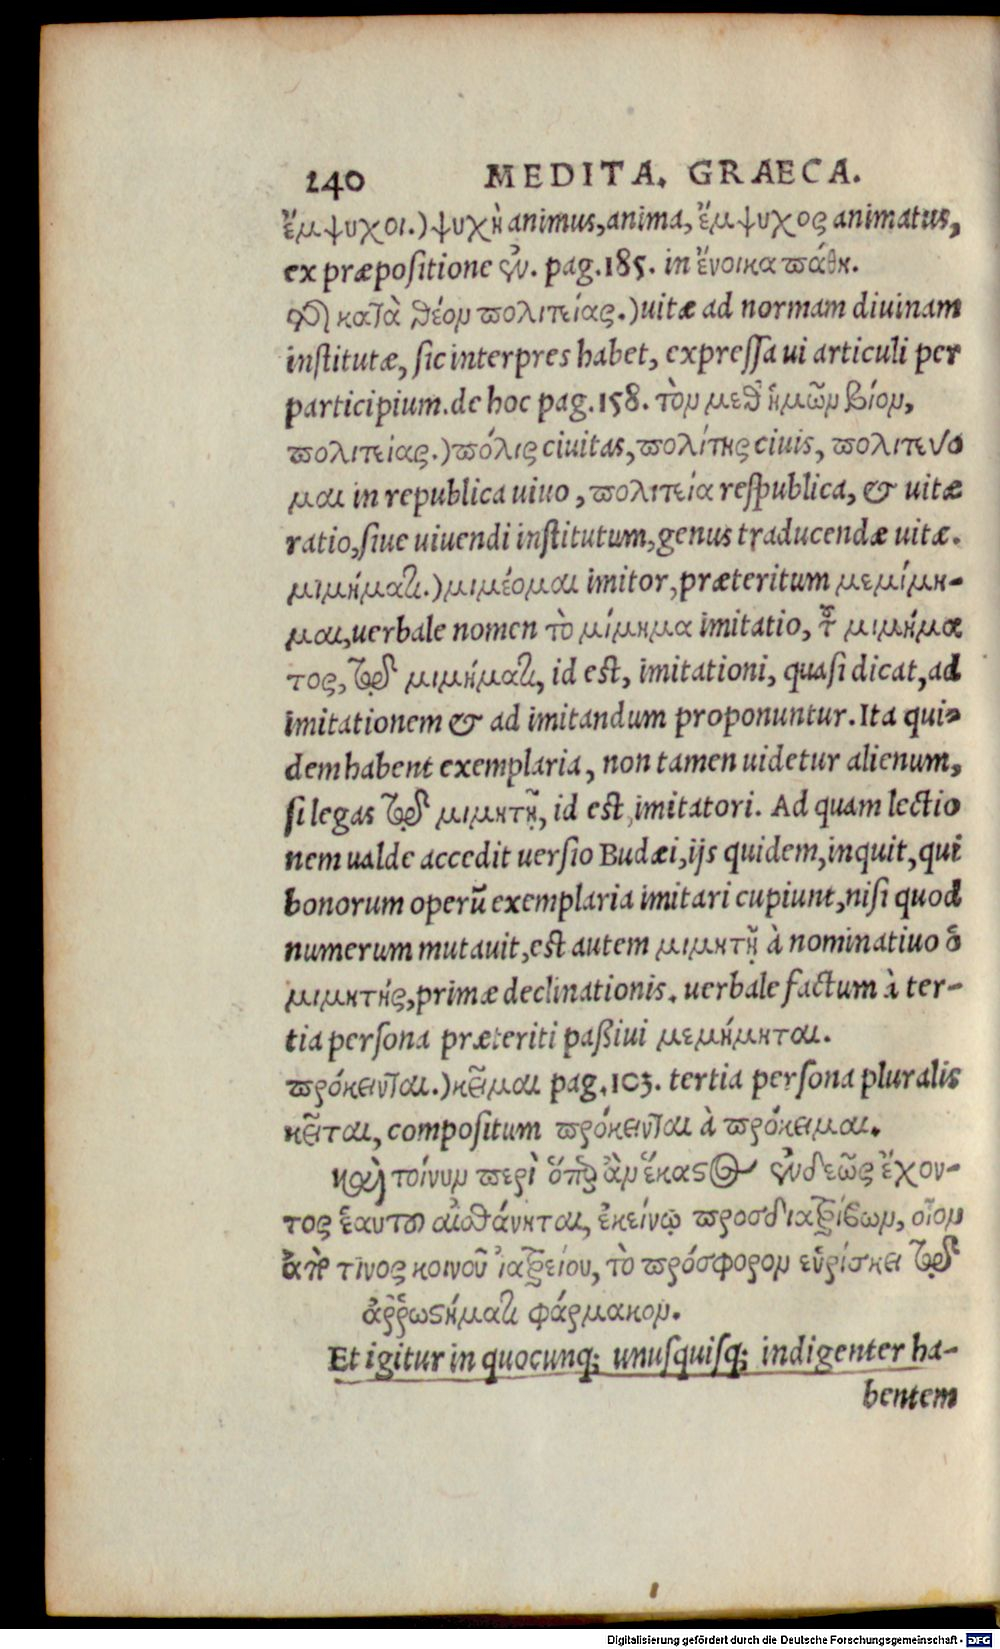 240 MEDITA. GRAECA.
ἔμψυχοι.) ψυχὴ animus, anima, ἔμψυχος animatus,
ex præpositione ἐν. pag. 185. in ἔνοικα πάθη.
τῆς κατὰ θεὸν πολιτείας.) uitæ ad normam diuinam
institutæ, sic interpres habet, expressa ui articuli per
participium. de hoc pag. 158. τὸν μεθ' ἡμῶν βίον,
πολιτείας.) πόλις ciuitas, πολίτης ciuis, πολιτεύο
μαι in republica uiuo, πολιτεία respublica, & uitæ
ratio, siue uiuendi institutum, genus traducendæ uitæ.
μιμήματι.) μιμέομαι imitor, præteritum μεμίμη-
μαι, uerbale nomen τὸ μίμημα imitatio, τοῦ μιμήμα
τος, τῷ μιμήματι, id est, imitationi, quasi dicat, ad
imitationem & ad imitandum proponuntur. Ita qui-
dem habent exemplaria, non tamen uidetur alienum,
si legas τῷ μιμητῇ, id est, imitatori. Ad quam lectio
nem ualde accedit uersio Budæi, ijs quidem, inquit, qui
bonorum operũ exemplaria imitari cupiunt, nisi quod
numerum mutauit, est autem μιμητῇ à nominatiuo ὁ
μιμητής, primæ declinationis. uerbale factum à ter-
tia persona præteriti paßiui μεμήμηται.
πρόκεινται.) κεῖμαι pag. 103. tertia persona pluralis
κεῖται, compositum πρόκεινται à πρόκειμαι.
καὶ τοίνυν περὶ ὅπερ ἂν ἕκαστος ἐνδεῶς ἔχον-
τος ἑαυτοῦ αἰσθάνηται, ἐκείνῳ προσδιατρίβων, οἷον
ἀπό τινος κοινοῦ ἰατρείου, τὸ πρόσφορον εὑρίσκει τῷ
ἀρρωστήματι φάρμακον.
Et igitur in quocunq; unusquisq; indigenter ha-
bentem
Digitalisierung gefördert durch die Deutsche Forschungsgemeinschaft - DFG